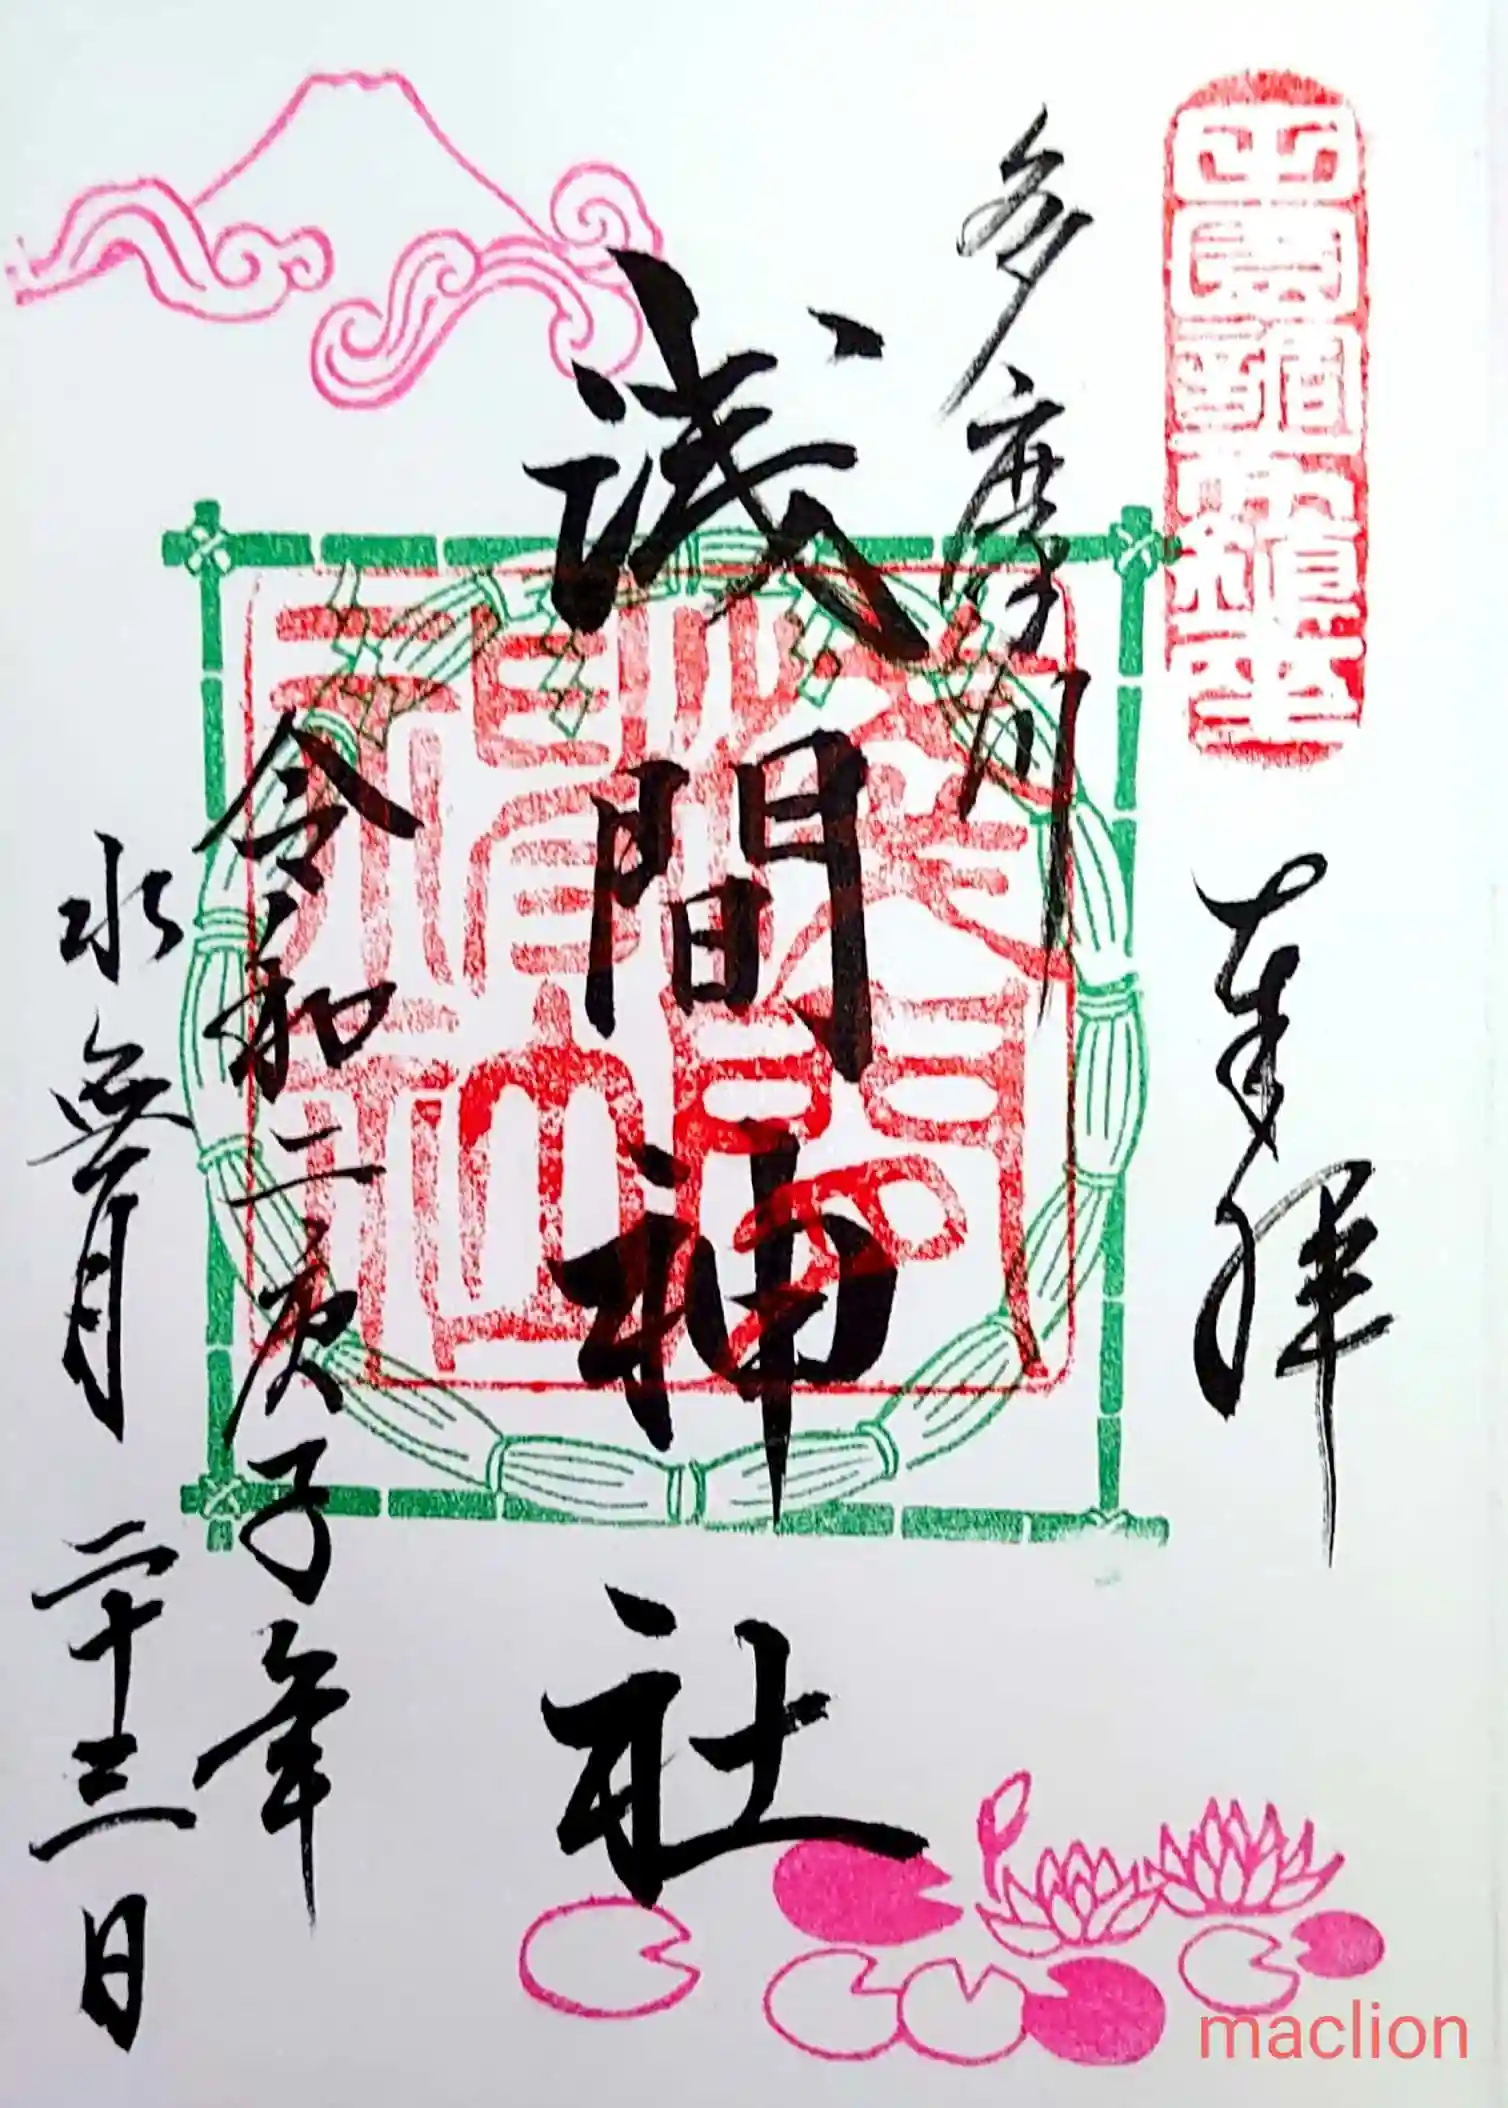 奉拝
多摩川
浅間神社
令和二庚子年
水無月 二十三日
maclion